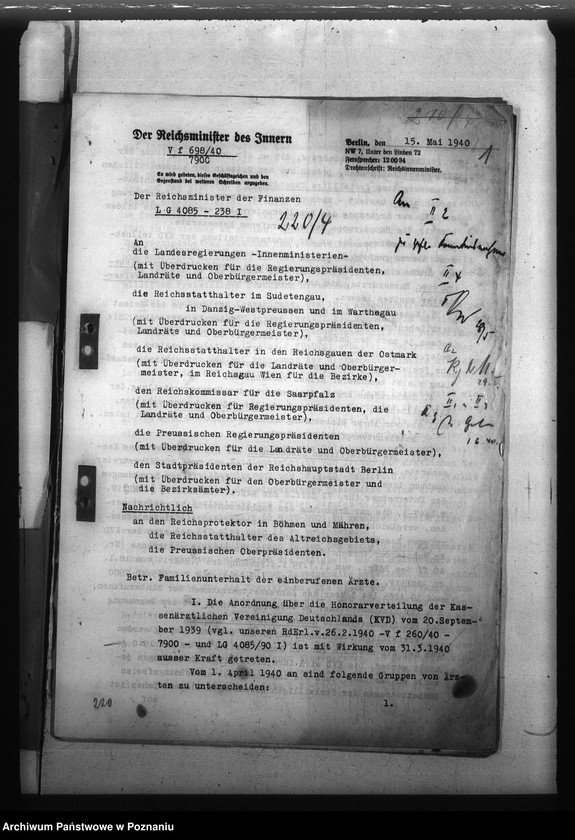 Der Reichsminister des Innern
V f 698/40
7900
Es wird gebeten, dieses Geschäftszeichen und den
Gegenstand bei weiteren Schreiben anzugeben.
Berlin, den 15. Mai 1940
NW 7, Unter den Linden 72
Fernsprecher: 12 00 34
Drahtanschrift: Reichsinnenminister.
1
Der Reichsminister der Finanzen
L G 4085 - 238 I
220/4
An
II 2
An
die Landesregierungen -Innenministerien-
(mit Überdrucken für die Regierungspräsidenten,
Landräte und Oberbürgermeister),
die Reichsstatthalter im Sudetengau,
in Danzig-Westpreussen und im Warthegau
(mit Überdrucken für die Regierungspräsidenten,
Landräte und Oberbürgermeister),
die Reichsstatthalter in den Reichsgauen der Ostmark
(mit Überdrucken für die Landräte und Oberbürger-
meister, im Reichsgau Wien für die Bezirke),
den Reichskommissar für die Saarpfalz
(mit Überdrucken für Regierungspräsidenten, die
Landräte und Oberbürgermeister),
die Preussischen Regierungspräsidenten
(mit Überdrucken für die Landräte und Oberbürgermeister),
den Stadtpräsidenten der Reichshauptstadt Berlin
(mit Überdrucken für den Oberbürgermeister und
die Bezirksämter).
Nachrichtlich
an den Reichsprotektor in Böhmen und Mähren,
die Reichsstatthalter des Altreichsgebiets,
die Preussischen Oberpräsidenten.
Betr. Familienunterhalt der einberufenen Ärzte.
I. Die Anordnung über die Honorarverteilung der Kas-
senärztlichen Vereinigung Deutschlands (KVD) vom 20.Septem-
ber 1939 (vgl. unseren RdErl.v.26.2.1940 -V f 260/40 -
7900 - und LG 4085/90 I) ist mit Wirkung vom 31.3.1940
ausser Kraft getreten.
Vom 1. April 1940 an sind folgende Gruppen von Ärz-
ten zu unterscheiden:
1.
220
Archiwum Państwowe w Poznaniu